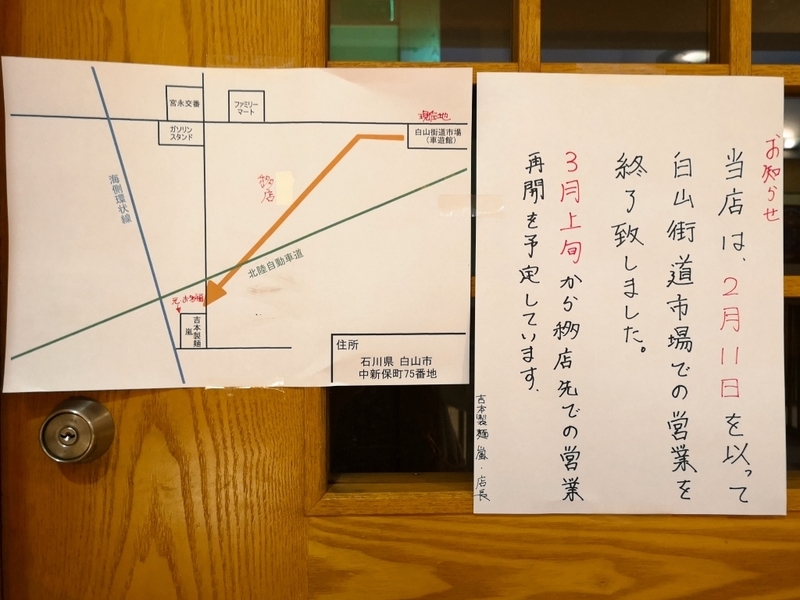 お知らせ
当店は、2月11日を以って
白山街道市場での営業を
終了致しました。
3月上旬から移店先での営業
再開を予定しています.
吉本製麺 嵐・店長
宮永交番
ファミリー
マート
ガソリン
スタンド
現在地
白山街道市場
(車遊館)
海側環状線
移店
北陸自動車道
吉本製麺
嵐
住所
石川県 白山市
中新保町75番地